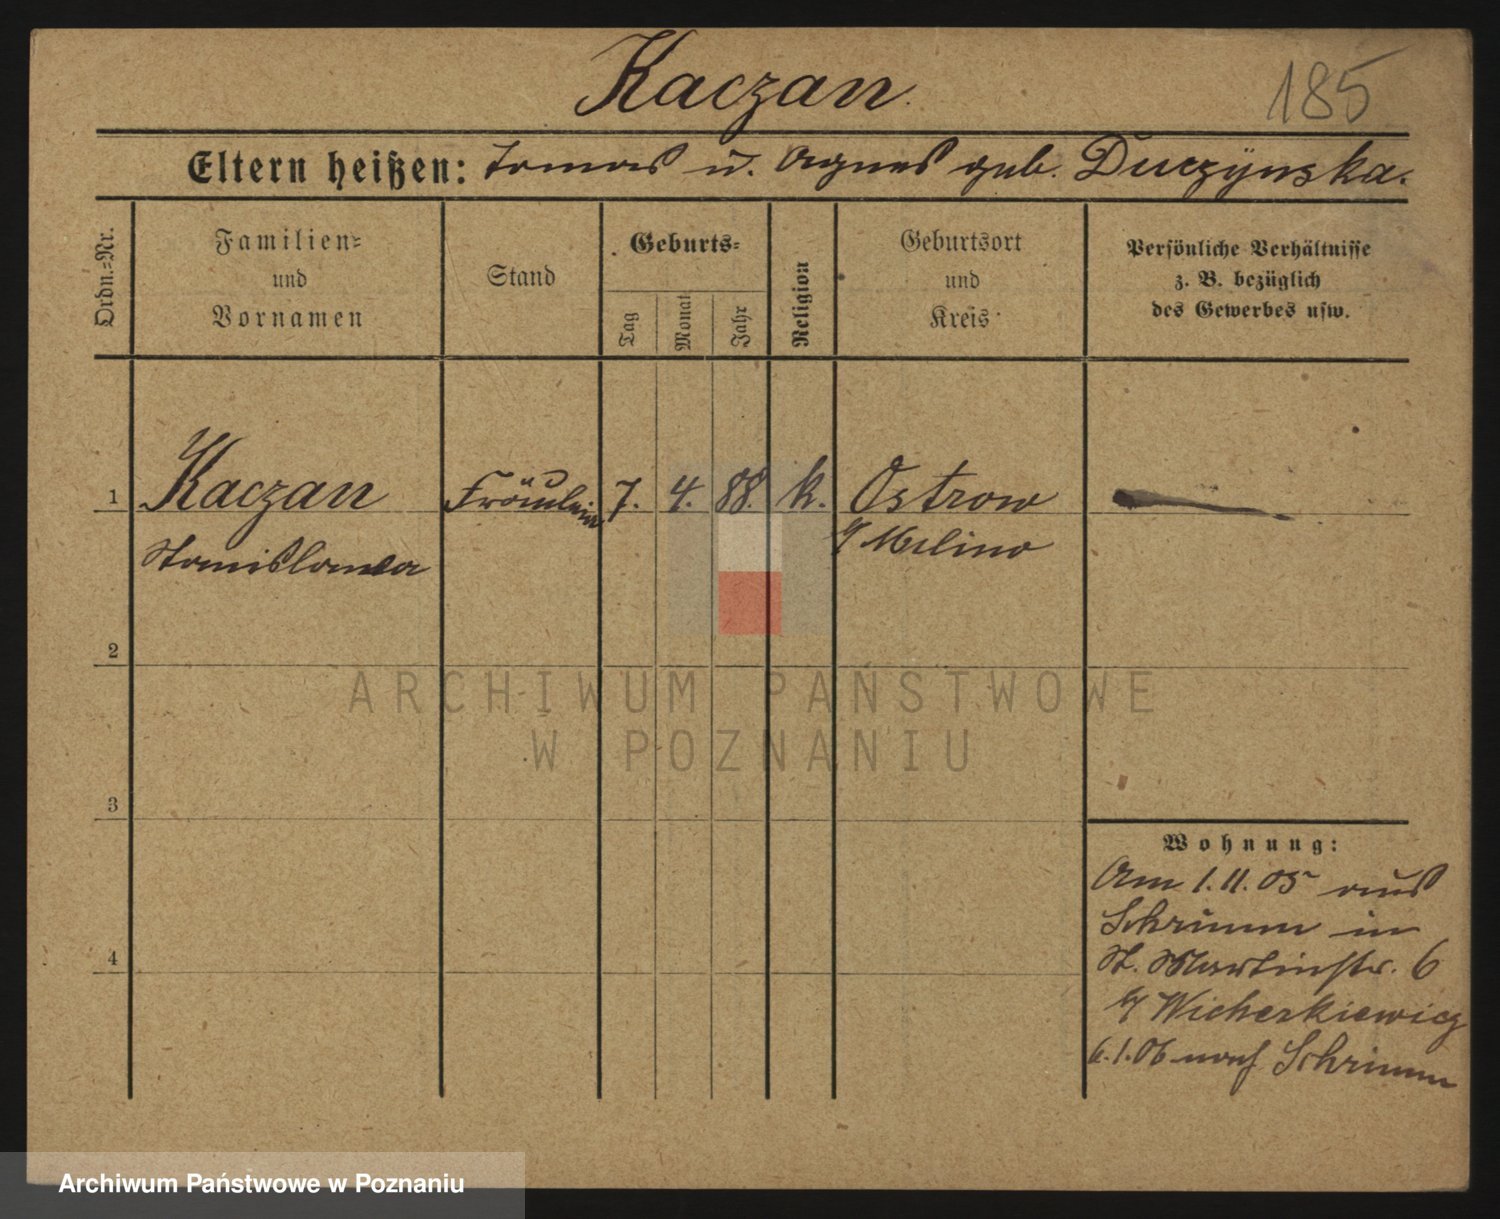 Kaczan.
185
Eltern heißen: Tomas u. Agnes geb. Duczynska.
Ordn.=Nr.
Familien=
und
Vornamen
Stand
Geburts=
Tag
Monat
Jahr
Religion
Geburtsort
und
Kreis
Persönliche Verhältnisse
z. B. bezüglich
des Gewerbes usw.
1 Kaczan Fräulein 7. 4. 88. k. Ostrow
Stanislawa Melino
2
ARCHIWUM PAŃSTWOWE
W POZNANIU
3
Wohnung:
Am 1.11.05 aus
Schrimm in
4 St. Martinstr. 6
b/ Wicherkiewicz
6.1.06 nach Schrimm
Archiwum Państwowe w Poznaniu